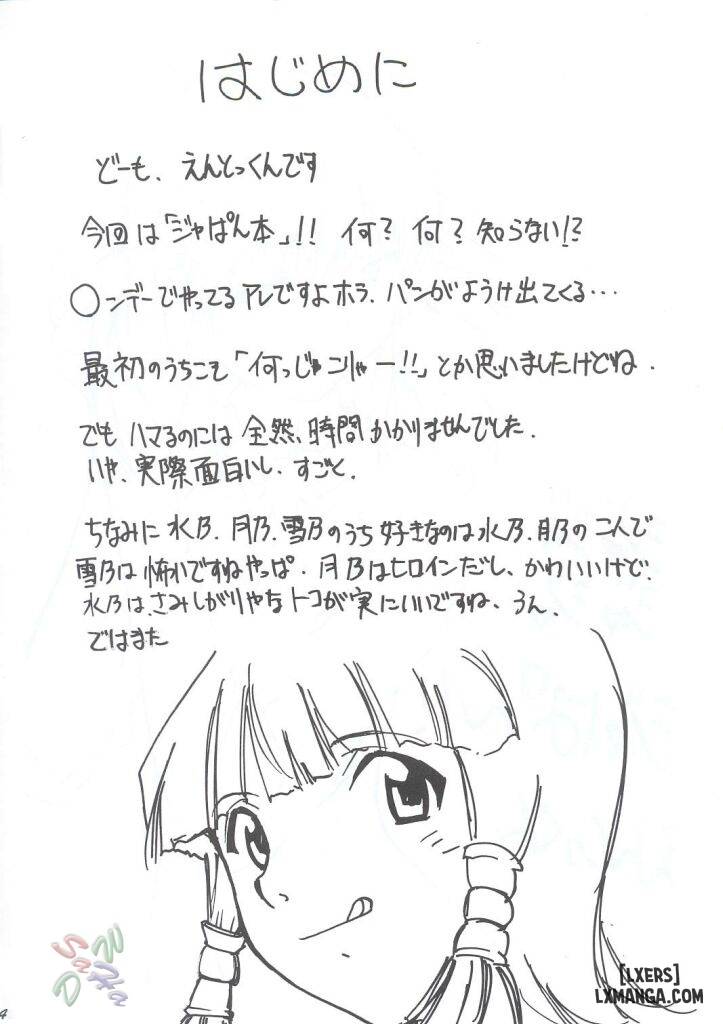 はじめに
どーも、えんとっくんです
今回は「ジャぱん本」!! 何? 何? 知らない!?
○ンデーでやってるアレですよホラ、パンがようけ出てくる…
最初のうちこそ「何っじゃこりゃー!!」とか思いましたけどね.
でもハマるのには全然、時間かかりませんでした.
いや、実際面白いし、すごく.
ちなみに水乃、月乃、雪乃のうち好きなのは水乃、月乃のこんで
雪乃は怖いですねやっぱ. 月乃はヒロインだし、かわいいけど、
水乃は、さみしがりやなトコが実にいいですね、うん.
ではまた
SaHa
4
[LXERS]
LXMANGA.COM